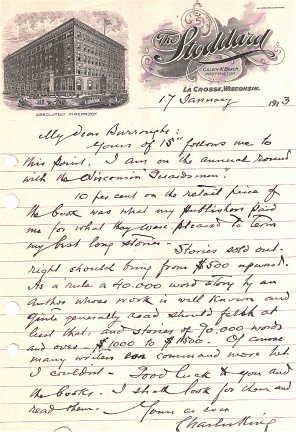 The Stoddard
CALVIN W. BAKER
PROPRIETOR.
LA CROSSE, WISCONSIN.
ABSOLUTELY FIREPROOF
17 January 1913
My dear Burroughs:
Yours of 15" follows me to
this point. I am on the annual round
with the Wisconsin Guardsmen.
10 per cent on the retail price of
the book was what my publishers paid
me for what they were pleased to term
my first long stories. Stories sold out-
right should bring from $500 upward.
As a rule a 40.000 word story by an
author whose work is well known and
quite generally read should fetch at
least that. and stories of 90.000 words
and over - $1000 to $1500. Of course
many writers can command more but
I couldn't - Good luck to you and
the books. I shall look for them and
read them. Yours as ever
Charles King